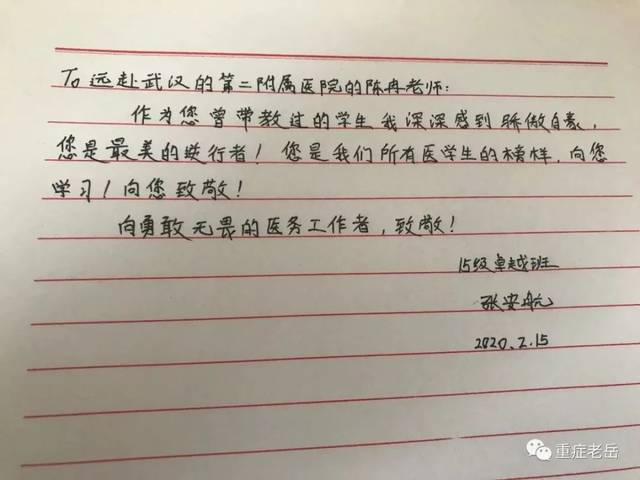 To 远赴武汉的第二附属医院的陈冉老师：
作为您曾带教过的学生我深深感到骄傲自豪，
您是最美的逆行者！您是我们所有医学生的榜样，向您
学习！向您致敬！
向勇敢无畏的医务工作者，致敬！
15级卓越班
张安航
2020.2.15
重症老岳